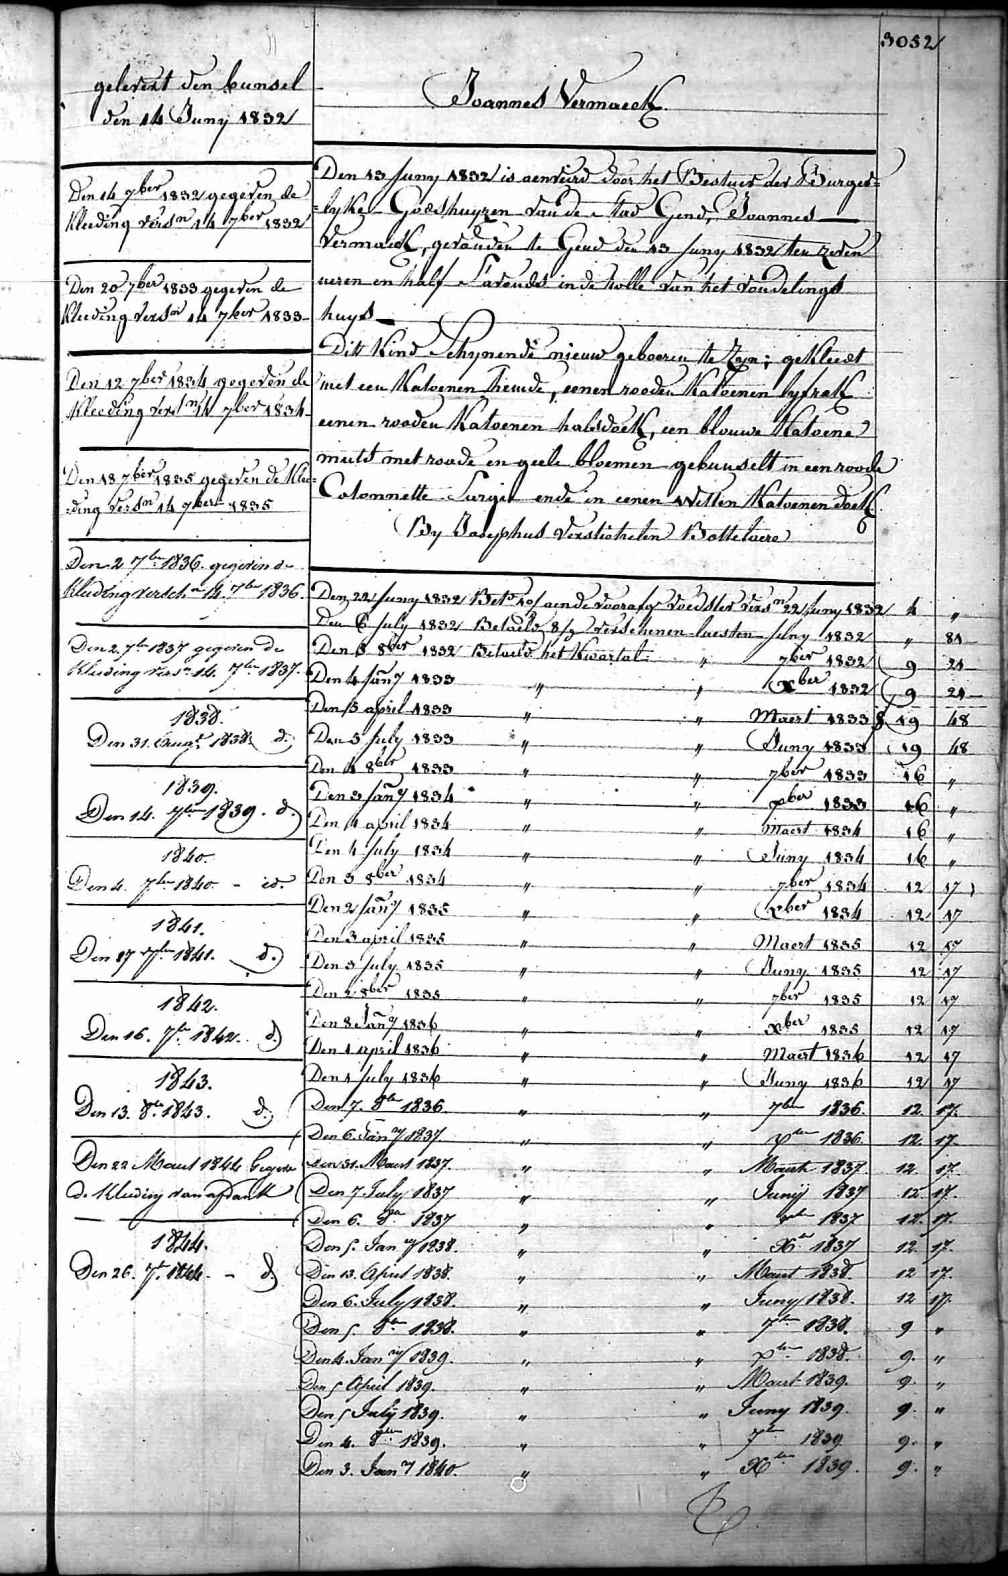 3052
gelevert den bunsel
den 14 Juny 1832
Joannes Vermaeck
Den 14 7ber 1832 gegeven de
kleeding versn 14 7ber 1832
Den 20 7ber 1833 gegeven de
kleeding versn 14 7ber 1833
Den 12 7ber 1834 gegeven de
kleeding versn 14 7ber 1834
Den 18 7ber 1835 gegeven de klee=
ding versn 14 7ber 1835
Den 2 7ber 1836. gegeven de
kleeding versch.n 14. 7ber 1836.
Den 2. 7ber 1837 gegeven de
kleeding versn 14. 7ber 1837.
1838.
Den 31. Augt 1838. d.
1839.
Den 14. 7ber 1839. d.
1840.
Den 4. 7ber 1840. - id.
1841.
Den 17 7ber 1841. d.
1842.
Den 16. 7ber 1842. d.
1843.
Den 13. 8ber 1843. d.
Den 22 Maert 1844 Gegeven
de kleeding van afdank
1844.
Den 26. 7ber 1844. - d.
Den 13 Juny 1832 is aenveird door het Bestuer der Burger=
=lyke Godshuyzen van de Stad Gend, Joannes
Vermaeck, gevonden te Gend den 13 Juny 1832 ten zeven
ueren en half s'avonds in de rolle van het vondelings
huys
Dit kind schynende nieuw geboren te zyn; gekleedt
met een katoenen hemde, eenen rooden katoenen lyfrok
eenen rooden katoenen halsdoek, een blouwe katoene
muts met roode en geele bloemen gebunselt in een roode
Cotonnette Sargie ende in eenen witten katoenen doek
By Josephus Verstichelen Bottelaere
Den 22 Juny 1832 Bet. aen de voorafg voedster versn 22 Juny 1832 4 "
Den 6 July 1832 Betaeld verschenen laesten Juny 1832 " 81
Den 8 8ber 1832 Betaeld het kwartal " 7ber 1832 9 21
Den 4 Jany 1833 " " Xber 1832 9 21
Den 5 april 1833 " " Maert 1833 19 48
Den 5 July 1833 " " Juny 1833 19 48
Den 4 8ber 1833 " " 7ber 1833 16 "
Den 3 Jany 1834 " " Xber 1833 16 "
Den 4 april 1834 " " Maert 1834 16 "
Den 4 July 1834 " " Juny 1834 16 "
Den 3 8ber 1834 " " 7ber 1834 12 17
Den 2 Jany 1835 " " Xber 1834 12 17
Den 3 april 1835 " " Maert 1835 12 17
Den 3 July 1835 " " Juny 1835 12 17
Den 2 8ber 1835 " " 7ber 1835 12 17
Den 8 Jany 1836 " " Xber 1835 12 17
Den 1 april 1836 " " Maert 1836 12 17
Den 1 July 1836 " " Juny 1836 12 17
Den 7. 8ber 1836. " " 7ber 1836. 12. 17.
Den 6. Jany 1837. " " Xber 1836. 12. 17.
Den 31. Maert 1837. " " Maert 1837. 12. 17.
Den 7. July 1837 " " Juny 1837 12. 17.
Den 6. 8ber 1837 " " 7ber 1837 12. 17.
Den 5. Jany 1838. " " Xber 1837 12. 17.
Den 13. April 1838. " " Maert 1838. 12 17.
Den 6. July 1838. " " Juny 1838. 12 17.
Den 5. 8ber 1838. " " 7ber 1838. 9 "
Den 4. Jany 1839. " " Xber 1838. 9. "
Den 5 April 1839. " " Maert 1839. 9. "
Den 5 July 1839. " " Juny 1839. 9. "
Den 4. 8ber 1839. " " 7ber 1839 9. "
Den 3. Jany 1840. " " Xber 1839. 9. "